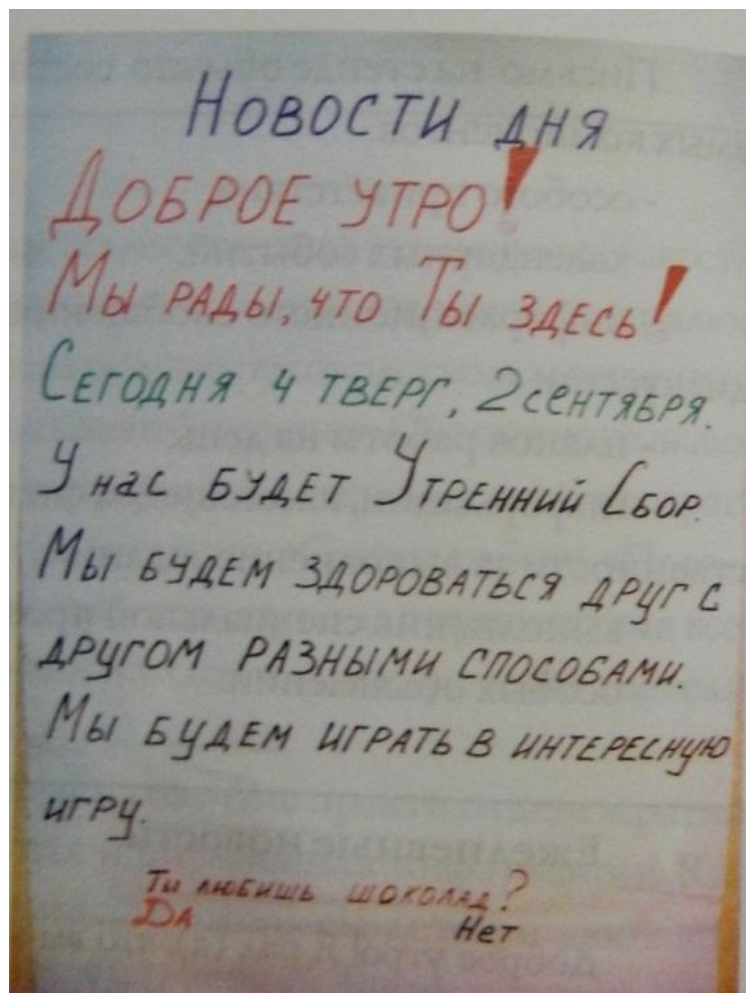 Новости дня
Доброе утро!
Мы рады, что Ты здесь!
Сегодня 4 тверг, 2 сентября.
У нас будет Утренний Сбор.
Мы будем здороваться друг с
другом разными способами.
Мы будем играть в интересную
игру.
Ты любишь шоколад?
Да Нет